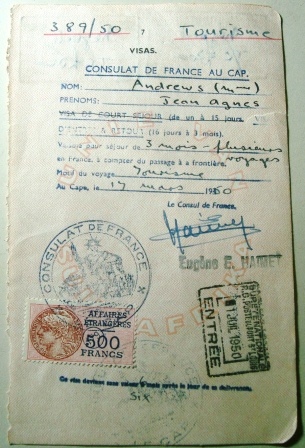 389/50 7 Tourisme
VISAS.
CONSULAT DE FRANCE AU CAP.
NOM: Andrews (Mme)
PRÉNOMS: Jean Agnes
VISA DE COURT SEJOUR (de un à 15 jours,
(15 jours à 3 mois).
Valable pour séjour de 3 mois - plusieurs
voyages
en France, à compter du passage à frontière,
Motif du voyage Tourisme
Au Cap, le 17 mars 1950
Le Consul de France,
Eugène E. HAINET
CONSULAT DE FRANCE
AFFAIRES
ÉTRANGÈRES
500
FRANCS
1950
ENTRÉE
Ce visa deviendra sans valeur mois après le jour de sa délivrance.
Six